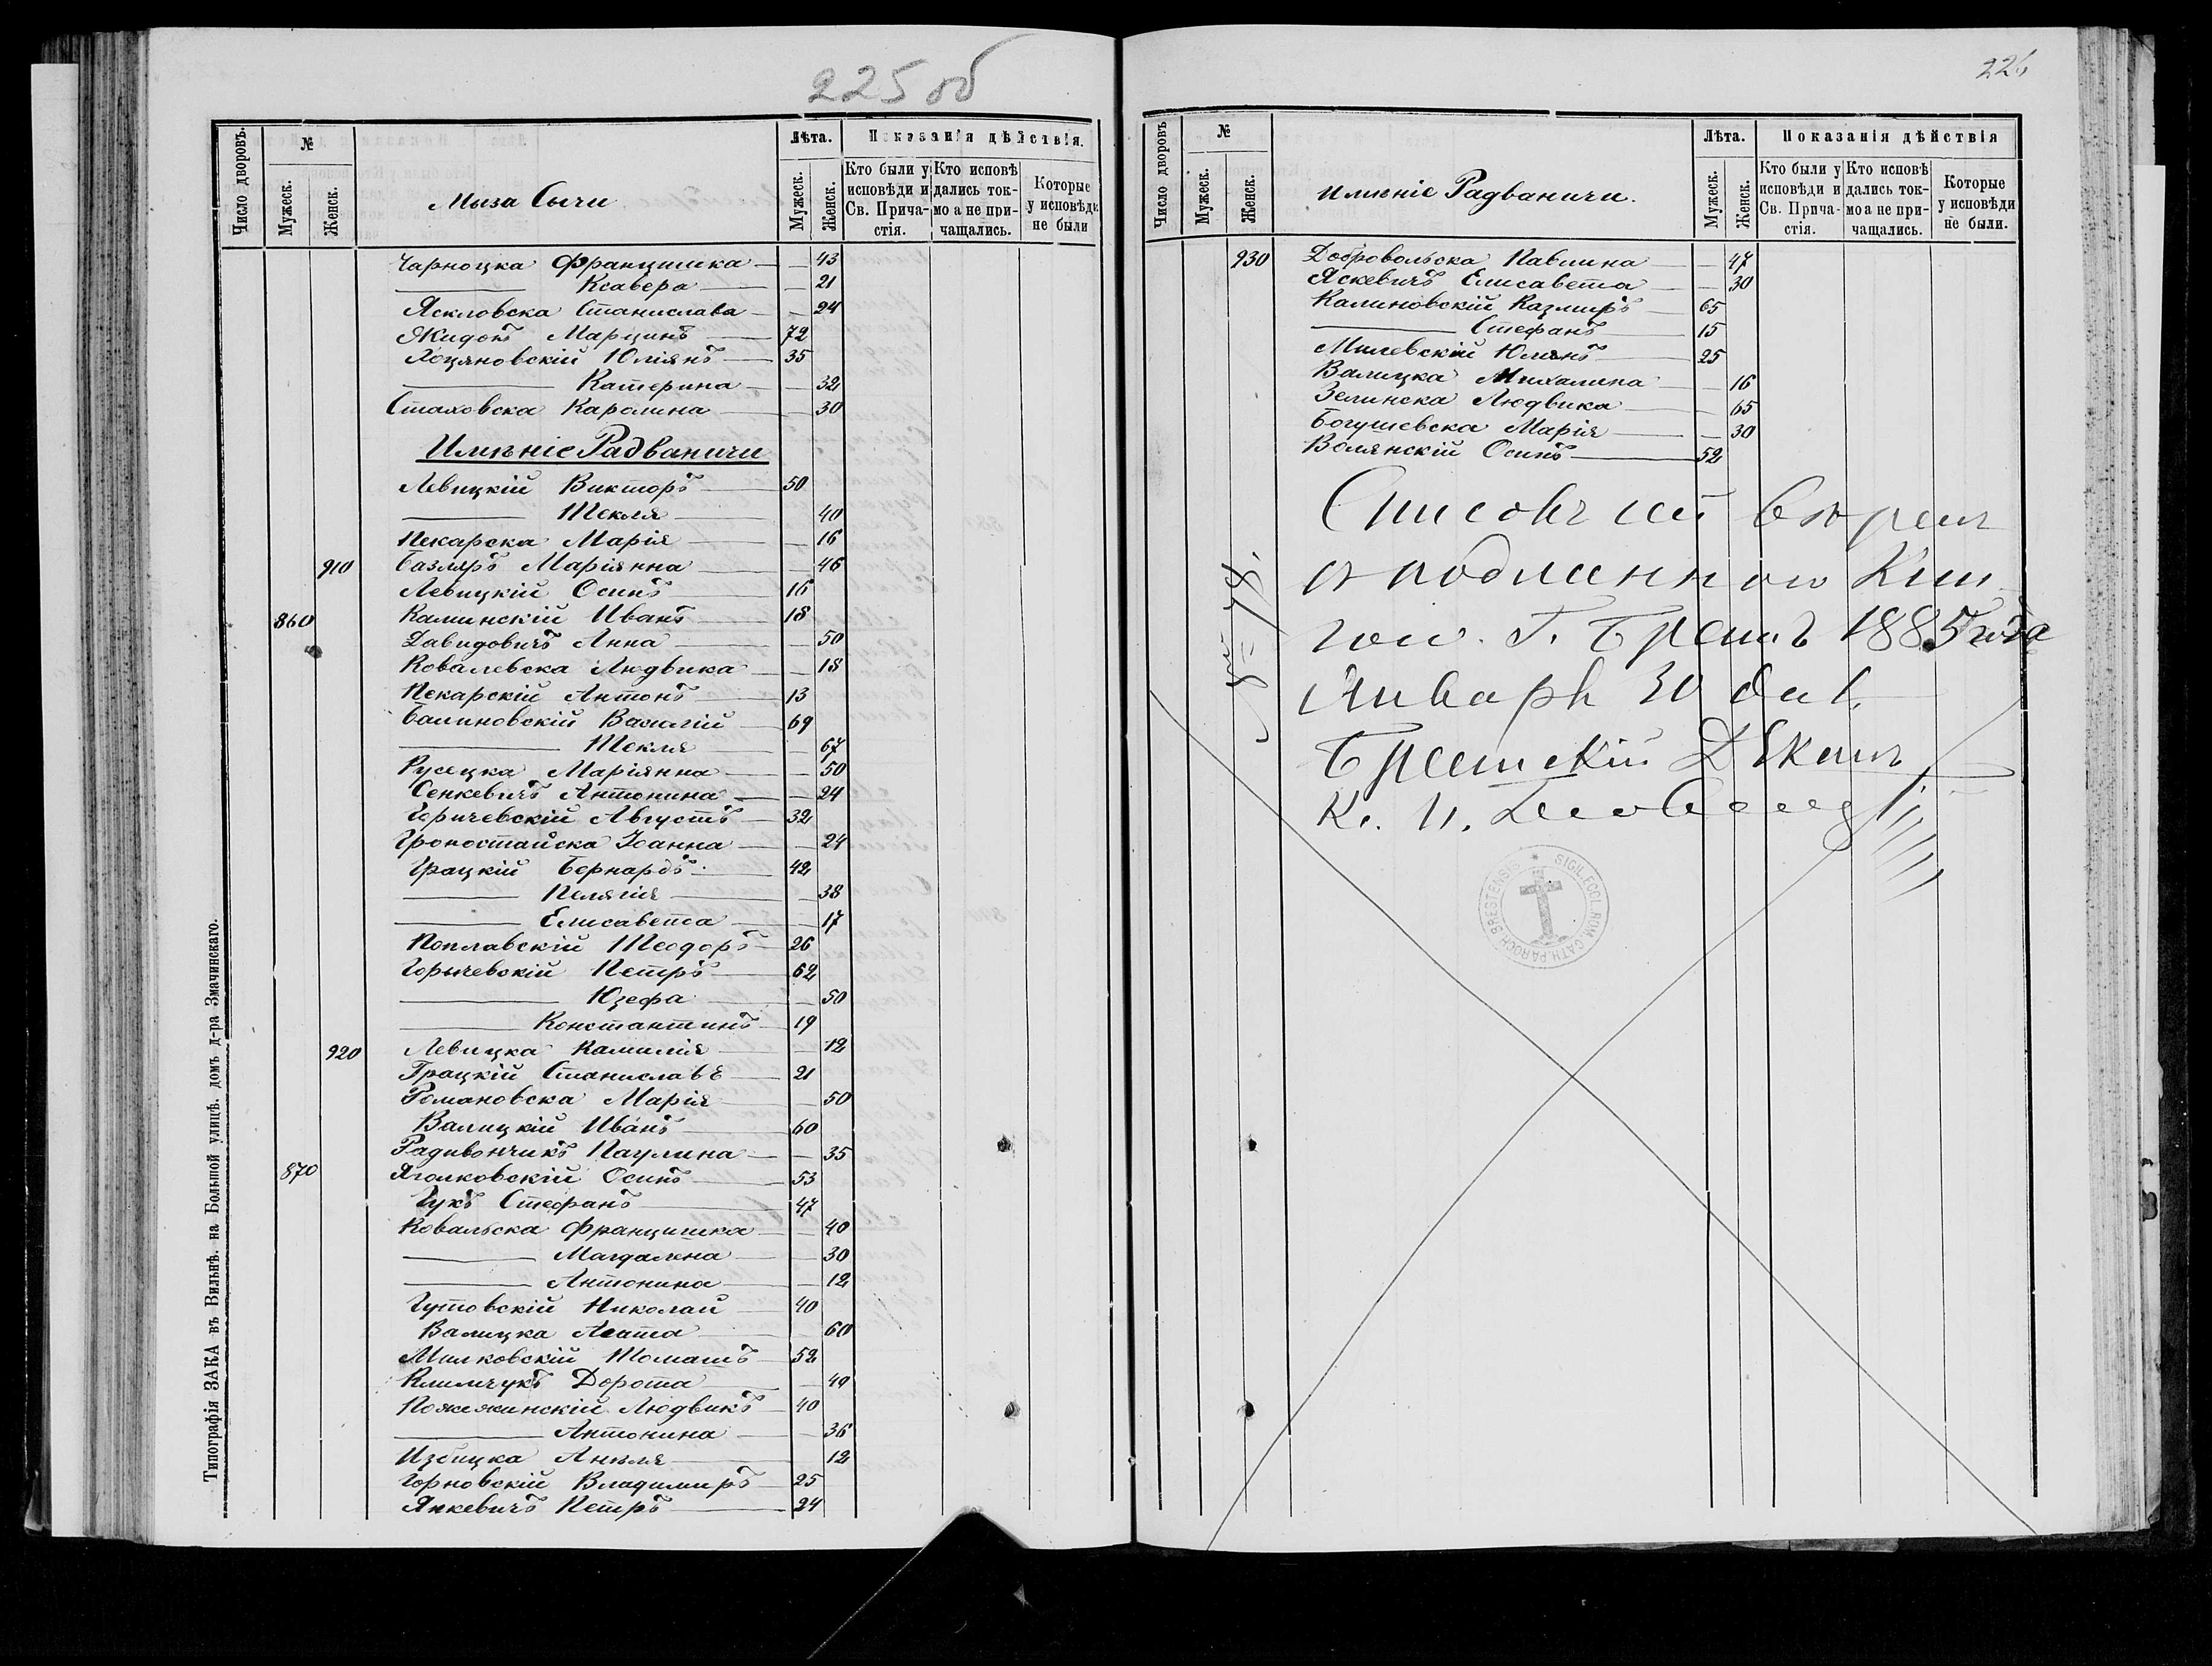 225 об
Число дворовъ.
№
Мужеск.
Женск.
Мыза Сычи
Лѣта.
Мужеск.
Женск.
Показанія дѣйствія.
Кто были у исповѣди и Св. Причастія.
Кто исповѣдались токмо а не причащались.
Которые у исповѣди не были
Чарноцка Францишка — 43
Ксавера — 21
Яскловска Станислава — 24
Жидокъ Марцинъ 72
Хоцяновскій Юліянъ 35
Катерина — 32
Стаховска Каролина — 30
Имѣніе Радваничи
Левицкій Викторъ 50
Текля 40
Пекарска Марія — 16
910 Базляръ Маріянна — 46
Левицкій Осипъ 16
860 Каминскій Иванъ 18
Давидовичъ Анна — 50
Ковалевска Людвика — 18
Пекарскій Антонъ 13
Балиновскій Василій 69
Текля — 67
Русецка Маріянна — 50
Сенкевичъ Антонина — 24
Горичевскій Августъ 32
Гроностайска Іоанна — 24
Грацкій Бернардъ 42
Пелягія — 38
Елисавета — 17
Поплавскій Теодоръ 26
Горычевскій Петръ 62
Юзефа — 50
Константинъ 19
920 Левицка Камилія — 12
Грацкій Станиславъ 21
Романовска Марія — 50
Валицкій Иванъ 60
Радивончикъ Паулина — 35
870 Яголковскій Осипъ 53
Гукъ Стефанъ 47
Ковальска Францишка — 40
Магдалена — 30
Антонина — 12
Гутовскій Николай 40
Валицка Агата 60
Милковскій Томашъ 52
Климчукъ Дорота — 49
Пожежинскій Людвикъ 40
Антонина — 36
Избицка Анеля 12
Горновскій Владимиръ 25
Янкевичъ Петръ 24
Типографія ЗАКА въ Вильнѣ. на Большой улицѣ. домъ д-ра Змачинскаго.
226
Число дворовъ
№
Мужеск.
Женск.
Имѣніе Радваничи.
Лѣта.
Мужеск.
Женск.
Показанія дѣйствія
Кто были у исповѣди и Св. Причастія.
Кто исповѣдались токмо а не причащались.
Которые у исповѣди не были.
930 Добровольска Павлина — 47
Яскевичъ Елисавета — 30
Калиновскій Казмиръ 65
Стефанъ 15
Милевскій Юліянъ 25
Валицка Михалина — 16
Зелинска Людвика — 65
Богушевска Марія — 30
Волянскій Осипъ 52
Списокъ сей вѣренъ
съ подлинною Кни
гою. Г. Брестъ 1885 года
Январь 30 дня.
Брестскій Деканъ
Кс. И.
SIGIL. ECCL. ROM. CATH. PAROCH. BRESTENSIS